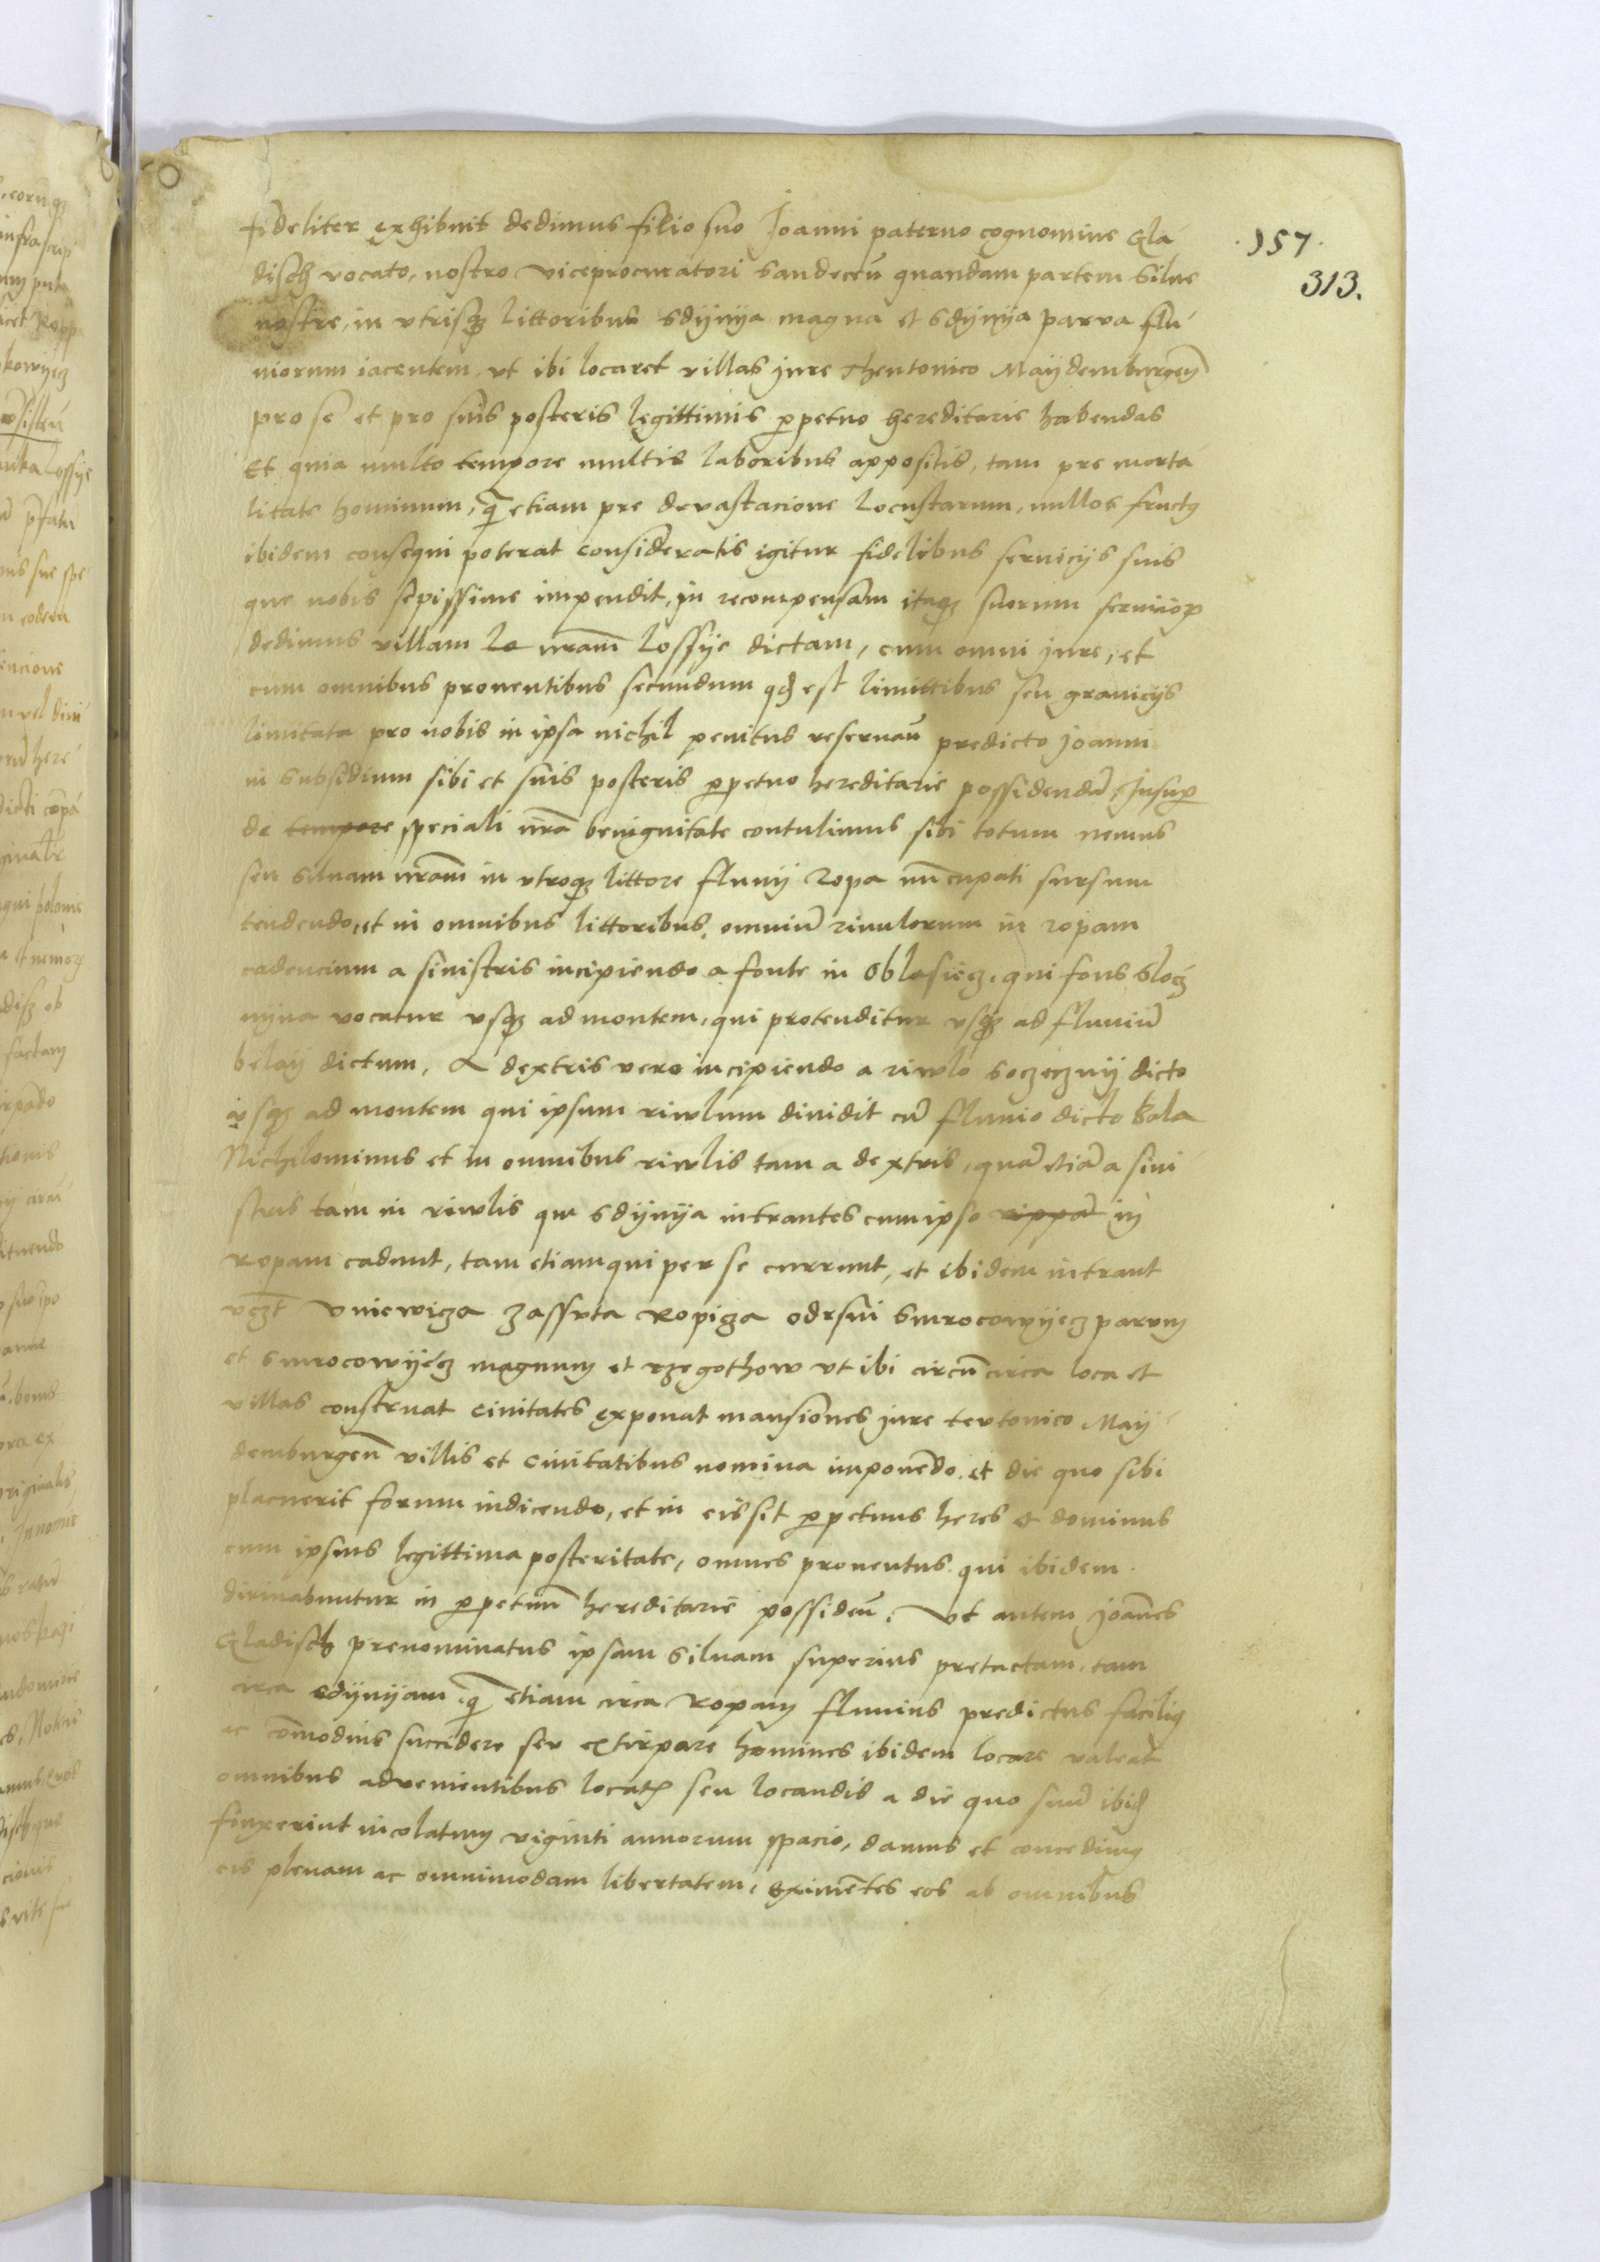 fideliter exhibuit dedimus filio suo Joanni paterno cognomine Gla
disch vocato, nostro viceprocuratori Sandeceñ quandam partem silue
nostre, in vtrisqȝ littoribus Sdÿnÿa magna et Sdÿnÿa parva flu
uiorum iacentem, vt ibi locaret villas jure Theutonico Maÿdemburgeñ
pro se et pro suis posteris legittimis ꝑpetuo hereditarie habendas
Et quia multo tempore multis laboribus appositis, tam pre morta
litate hominum, q̃ etiam pre devastacione locustarum, nullos fructꝯ
ibidem consequi poterat consideratis igitur fidelibus servicÿs suis
que nobis sepissime impendit, in recompensam itaqȝ suorum servicioꝝ
dedimus villam nr̃am Lossÿe dictam, cum omni jure, et
cum omnibus prouentibus secundum qđ est limittibus seu granicÿs
limitata pro nobis in ipsa nichil penitus reseruañ predicto Joanni
in subsidium sibi et suis posteris ꝑpetuo hereditarie possidendã, Insuꝑ
de tempore speciali nr̃a benignitate contulimus sibi totum nemus
seu siluam nr̃am in vtroqȝ littore fluuÿ Ropa nũcupati sursum
tendendo, et in omnibus littoribus, omniũ riuulorum in ropam
cadencium a sinistris incipiendo a fonte in Oblasiecȝ, qui fons Slocȝ
nÿna vocatur vsqȝ ad montem, qui protenditur vsqȝ ad fluuiũ
belaÿ dictum, A dextris vero incipiendo a riwlo Soczecznÿ dicto
vsqȝ ad montem qui ipsum riwlum diuidit cũ fluuio dicto Bala
Nichilominus et in omnibus riwlis tam a dextris, quã etiã a sini
stris tam in riwlis qui Sdÿnÿa intrantes cum ipso rippã in
Ropam cadunt, tam etiam qui per se currunt, et ibidem intrant
vcȝt Vniewicȝa Zassvta Ropicȝa Odrsini Smrocowÿecȝ parvum
et Smrocowÿecȝ magnum et rzegothow vt ibi circũcirca loca et
villas construat ciuitates exponat mansiones jure tevtonico Maÿ
demburgeñ villis et Ciuitatibus nomina imponendo, et die quo sibi
placuerit forum indicendo, et in eis sit ꝑpetuus heres et dominus
cum ipsius legittima posteritate, omnes prouentus qui ibidem
dirinabuntur in ꝑpetuũ hereditarie possideñ. Vt autem Joañes
Gladisch prenominatus ipsam siluam superius pretactam, tam
circa Sdÿnÿam q̃ etiam circa Ropam fluuius predictus faciliꝯ
ac cõmodius succidere seu extirpare homines ibidem locare valeat
omnibus advenientibus locatꝭ seu locandis a die quo suũ ibid
finxerint incolatum viginti annorum spacio, damus et concedimꝯ
eis plenam ac omnimodam libertatem, eximẽtes eos ab omnibus
157.
313.